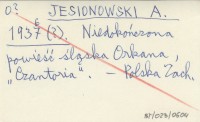 02 JESIONOWSKI A.
6
1937 (?). Niedokończona
powieść śląska Orkana,
„Czantoria". – Polska Zach.